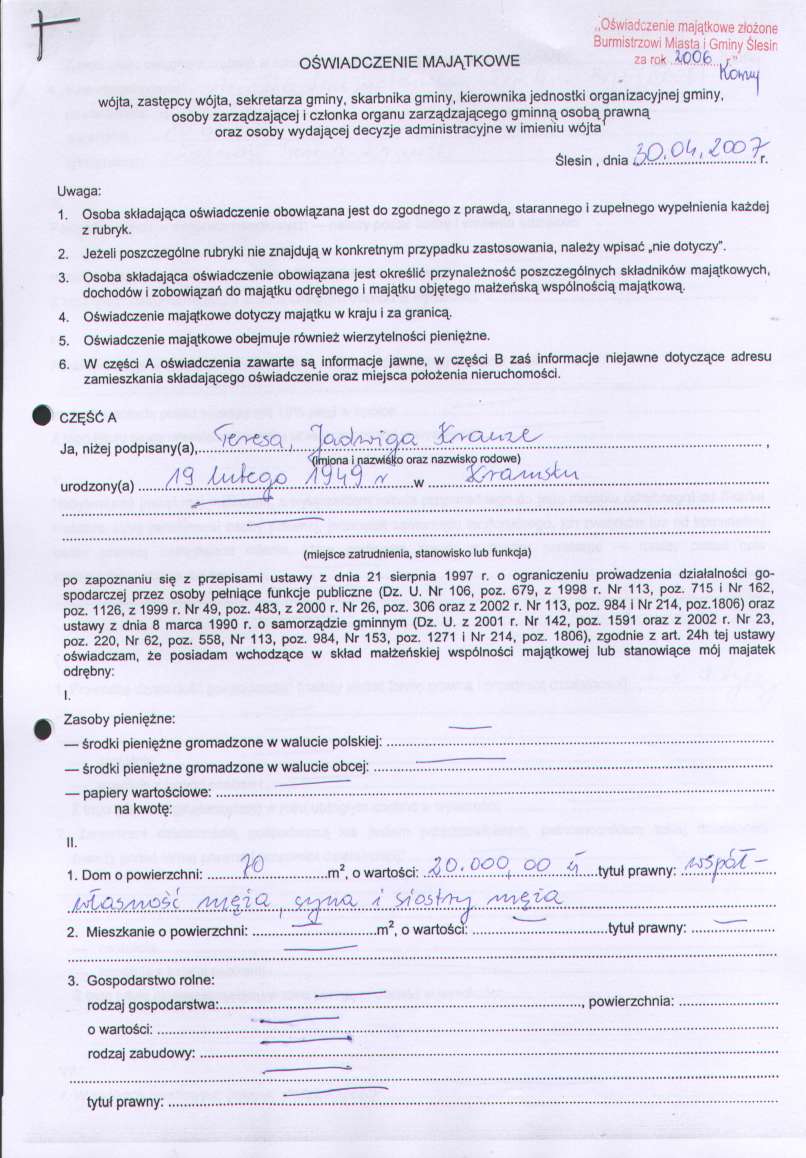 „Oświadczenie majątkowe złożone
Burmistrzowi Miasta i Gminy Ślesin
za rok 2006 r."
OŚWIADCZENIE MAJĄTKOWE
wójta, zastępcy wójta, sekretarza gminy, skarbnika gminy, kierownika jednostki organizacyjnej gminy,
osoby zarządzającej i członka organu zarządzającego gminną osobą prawną
oraz osoby wydającej decyzje administracyjne w imieniu wójta
Ślesin , dnia 30.04.2007 r.
Uwaga:
1. Osoba składająca oświadczenie obowiązana jest do zgodnego z prawdą, starannego i zupełnego wypełnienia każdej
z rubryk.
2. Jeżeli poszczególne rubryki nie znajdują w konkretnym przypadku zastosowania, należy wpisać „nie dotyczy".
3. Osoba składająca oświadczenie obowiązana jest określić przynależność poszczególnych składników majątkowych,
dochodów i zobowiązań do majątku odrębnego i majątku objętego małżeńską wspólnością majątkową.
4. Oświadczenie majątkowe dotyczy majątku w kraju i za granicą.
5. Oświadczenie majątkowe obejmuje również wierzytelności pieniężne.
6. W części A oświadczenia zawarte są informacje jawne, w części B zaś informacje niejawne dotyczące adresu
zamieszkania składającego oświadczenie oraz miejsca położenia nieruchomości.
CZĘŚĆ A
Ja, niżej podpisany(a), Teresa, Jadwiga Krauze ,
(imiona i nazwisko oraz nazwisko rodowe)
urodzony(a) 19 lutego 1949 r w Kramsku
(miejsce zatrudnienia, stanowisko lub funkcja)
po zapoznaniu się z przepisami ustawy z dnia 21 sierpnia 1997 r. o ograniczeniu prowadzenia działalności go-
spodarczej przez osoby pełniące funkcje publiczne (Dz. U. Nr 106, poz. 679, z 1998 r. Nr 113, poz. 715 i Nr 162,
poz. 1126, z 1999 r. Nr 49, poz. 483, z 2000 r. Nr 26, poz. 306 oraz z 2002 r. Nr 113, poz. 984 i Nr 214, poz.1806) oraz
ustawy z dnia 8 marca 1990 r. o samorządzie gminnym (Dz. U. z 2001 r. Nr 142, poz. 1591 oraz z 2002 r. Nr 23,
poz. 220, Nr 62, poz. 558, Nr 113, poz. 984, Nr 153, poz. 1271 i Nr 214, poz. 1806), zgodnie z art. 24h tej ustawy
oświadczam, że posiadam wchodzące w skład małżeńskiej wspólności majątkowej lub stanowiące mój majatek
odrębny:
I.
Zasoby pieniężne:
— środki pieniężne gromadzone w walucie polskiej: —
— środki pieniężne gromadzone w walucie obcej: —
— papiery wartościowe: —
na kwotę:
II.
1. Dom o powierzchni: 70 m², o wartości: 20.000,00 zł tytuł prawny: współ-
własność męża, syna i siostry męża
2. Mieszkanie o powierzchni: — m², o wartości: — tytuł prawny: —
—
3. Gospodarstwo rolne:
rodzaj gospodarstwa: — , powierzchnia:
o wartości: —
rodzaj zabudowy: —
—
tytuł prawny: —